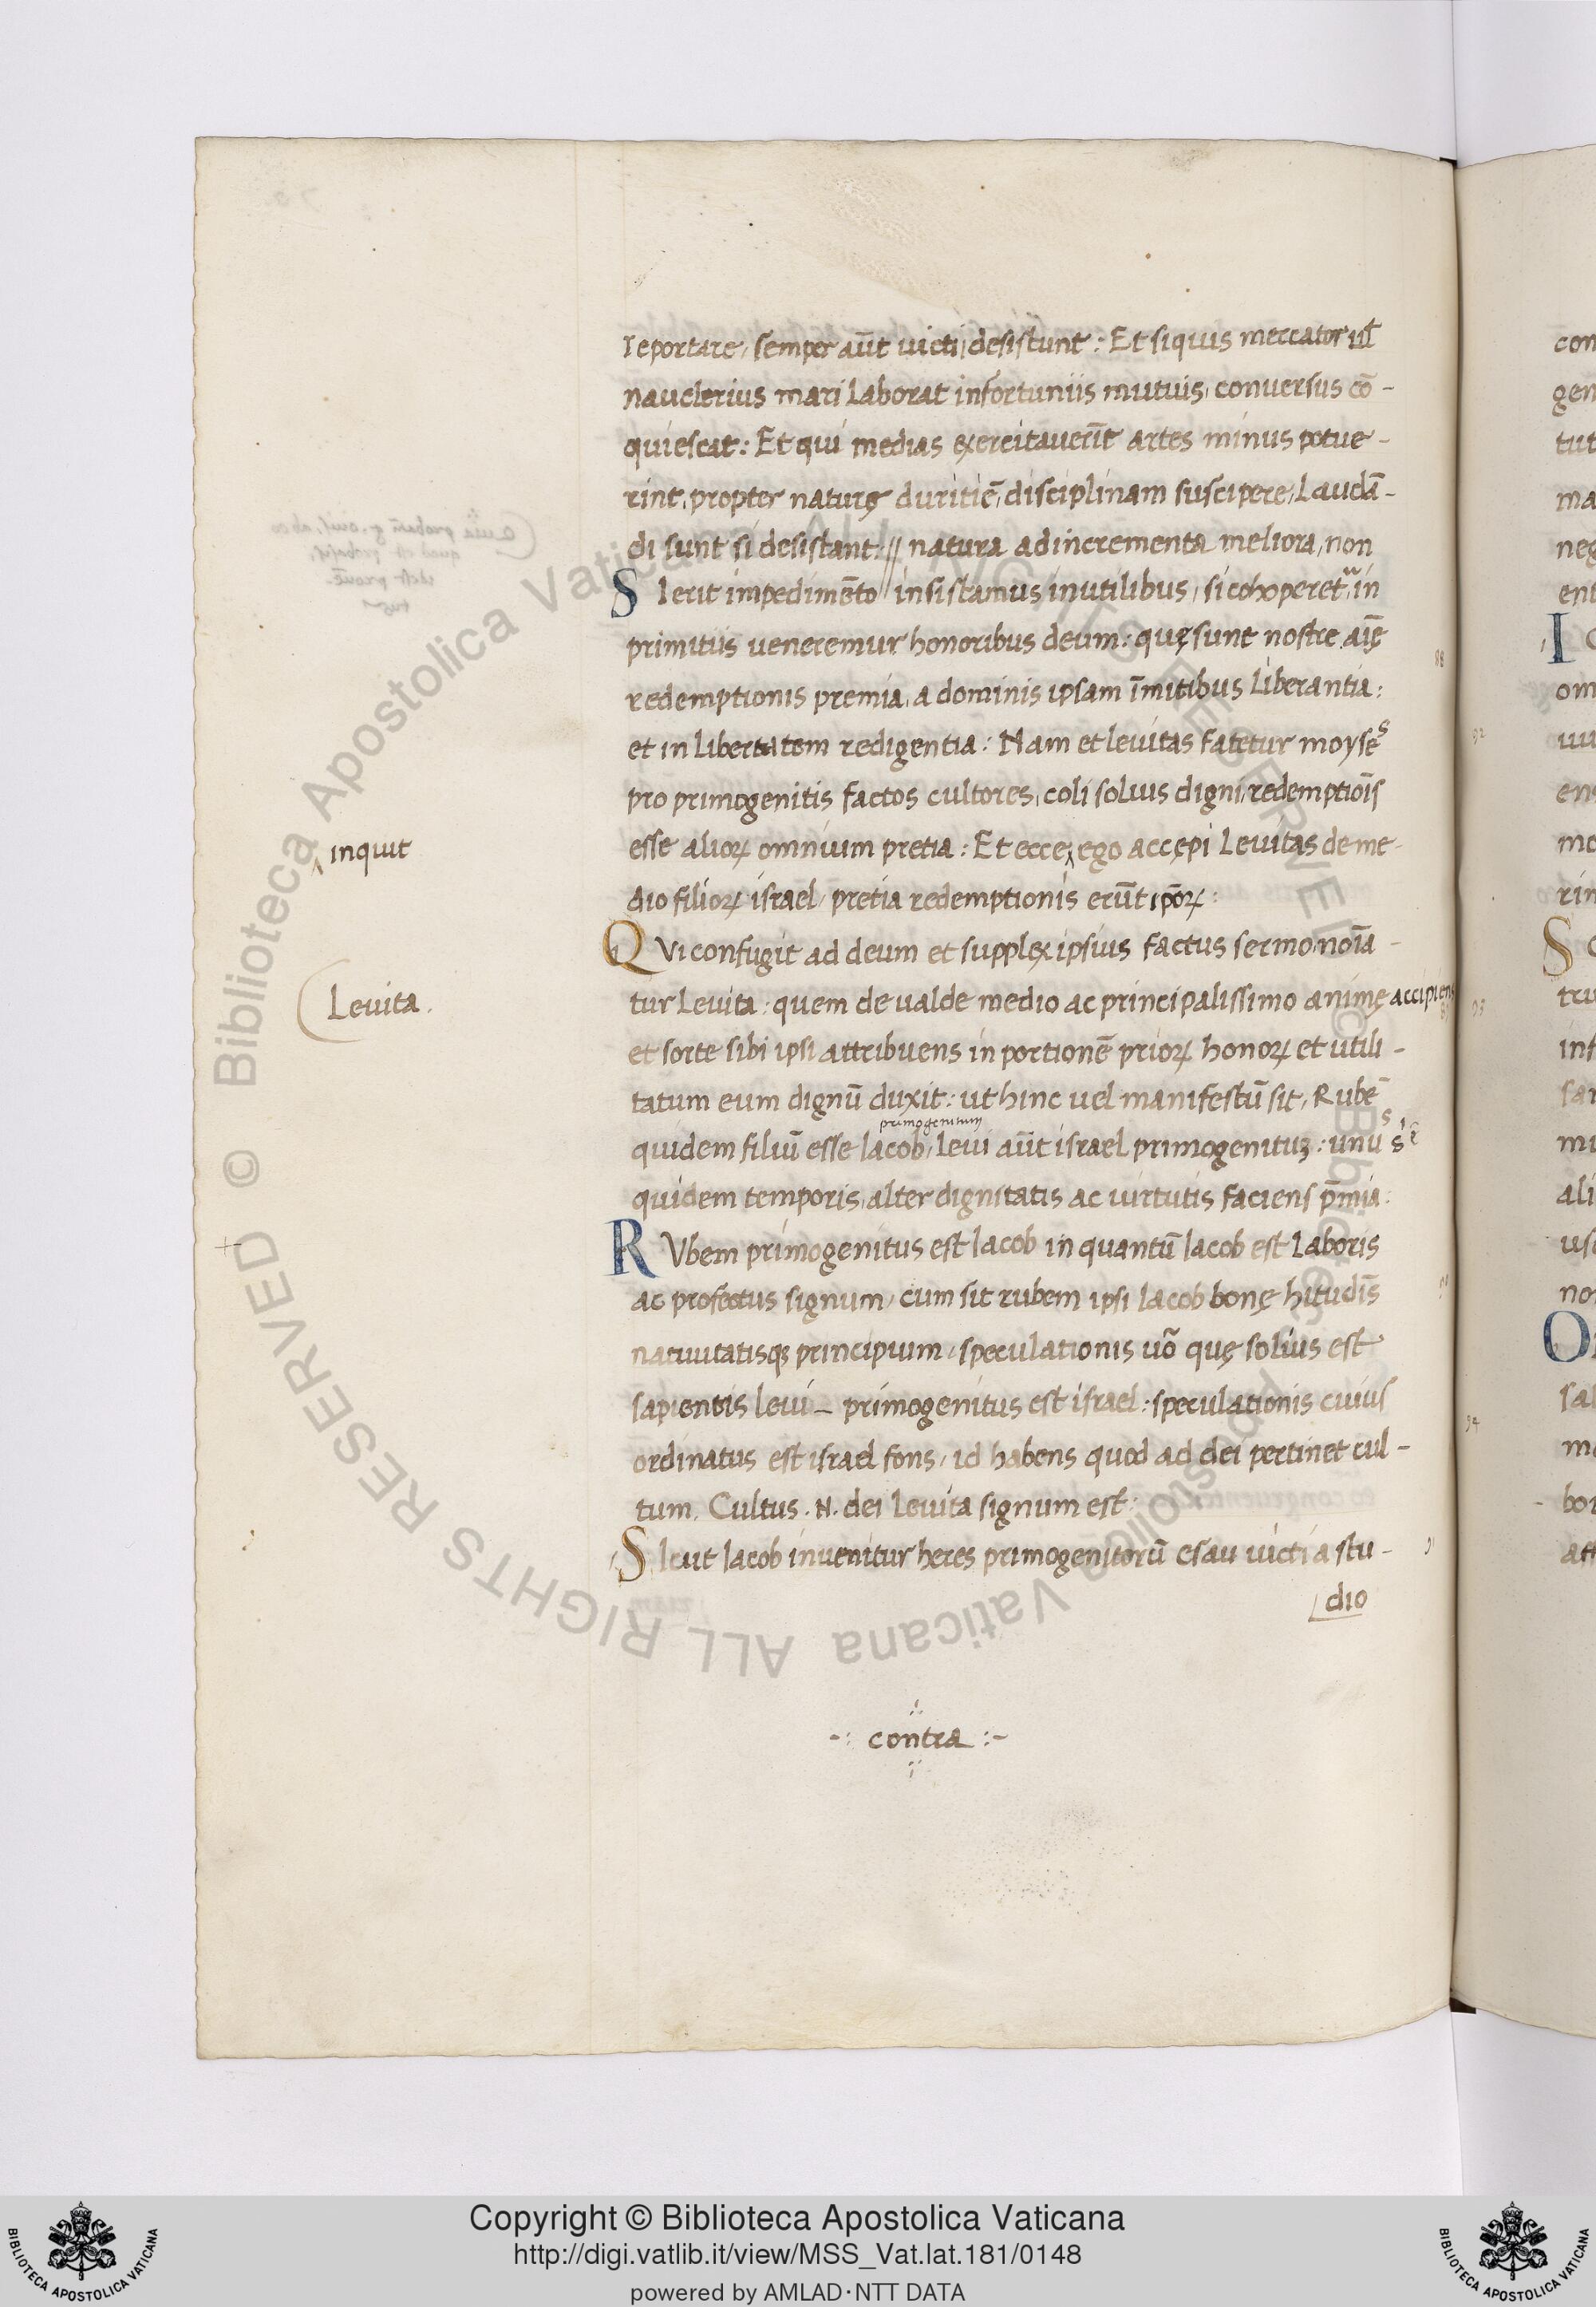 reportare, semper aūt uicti desistunt: Et siquis mercator ul̄
nauclerius mari laborat infortuniis mutuis, conuersus cō-
quiescat: Et qui medias exercitauerīt artes minus potue-
rint, propter naturę duritiē, disciplinam suscipere, Laudā-
di sunt si desistant: // natura ad incrementa meliora, non
SI erit impedimēto // insistamus inutilibus, si cohoperet, in
primitiis ueneremur honoribus deum: quę sunt nostre aīę
redemptionis premia, a dominis ipsam īmitibus liberantia:
et in libertatem redigentia: Nam et leuitas fatetur moyses
pro primogenitis factos cultores, coli solius digni, redemptiōis
esse alioꝝ omnium pretia: Et ecce ‸ ego accępi Leuitas de me-
‸ inquit
dio filioꝝ israel, pretia redemptionis erūt ipōꝝ:
QVi confugit ad deum et supplex ipsius factus sermo, noīa-
tur Leuita: quem de ualde medio ac principalissimo animę accipiens
Leuita.
et sorte sibi ipsi attribuens in portionē prioꝝ honoꝝ et utili-
tatum eum dignū duxit: ut hinc uel manifestū sit, Rubē
primogenitum
quidem filiū esse Iacob, Leui aūt israel primogenituꝫ: unus
quidem temporis, alter dignitatis ac uirtutis faciens p̄mia:
RVbem primogenitus est Iacob in quantū Iacob est Laboris
ac profectus signum, cum sit rubem ipsi Iacob bonę hitudīs
natiuitatisqꝫ principium, speculationis uō quę solius est
sapientis leui - primogenitus est israel: speculationis cuius
ordinatus est israel fons, id habens quod ad dei pertinet cul-
tum. Cultus .N. dei Leuita signum est:
SIcut Iacob inuenitur heres primogenitorū esau uicti a stu-
dio
-: contra :-
Copyright © Biblioteca Apostolica Vaticana
http://digi.vatlib.it/view/MSS_Vat.lat.181/0148
powered by AMLAD·NTT DATA